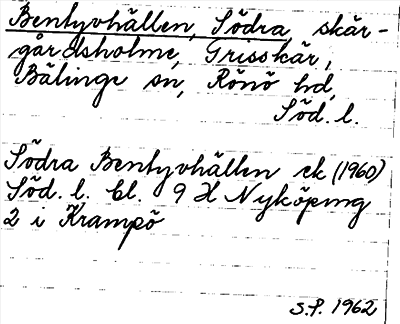 Bentyvhällen, Södra, skär-
gårdsholme, Grisskär,
Bälinge sn, Rönö hd,
Söd. l.
Södra Bentyvhällen ek (1960)
Söd. l. bl. 9 H Nyköping
2 i Krampö
S.P. 1962